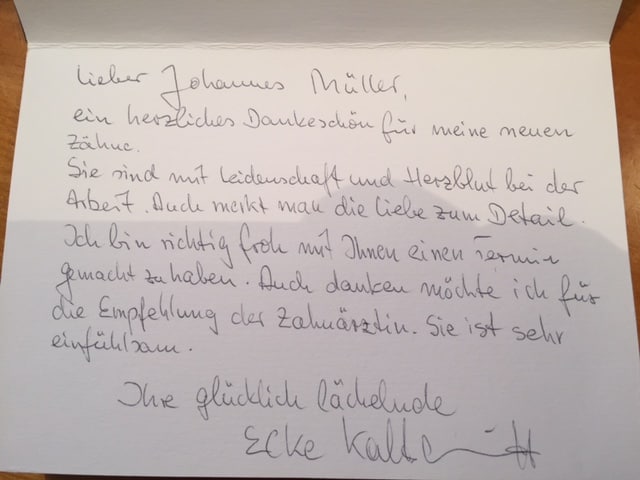 Lieber Johannes Müller,
ein herzliches Dankeschön für meine neuen
Zähne.
Sie sind mit Leidenschaft und Herzblut bei der
Arbeit. Auch merkt man die Liebe zum Detail.
Ich bin richtig froh mit Ihnen einen Termin
gemacht zu haben. Auch danken möchte ich für
die Empfehlung der Zahnärztin. Sie ist sehr
einfühlsam.
Ihre glücklich lächelnde
Ecke